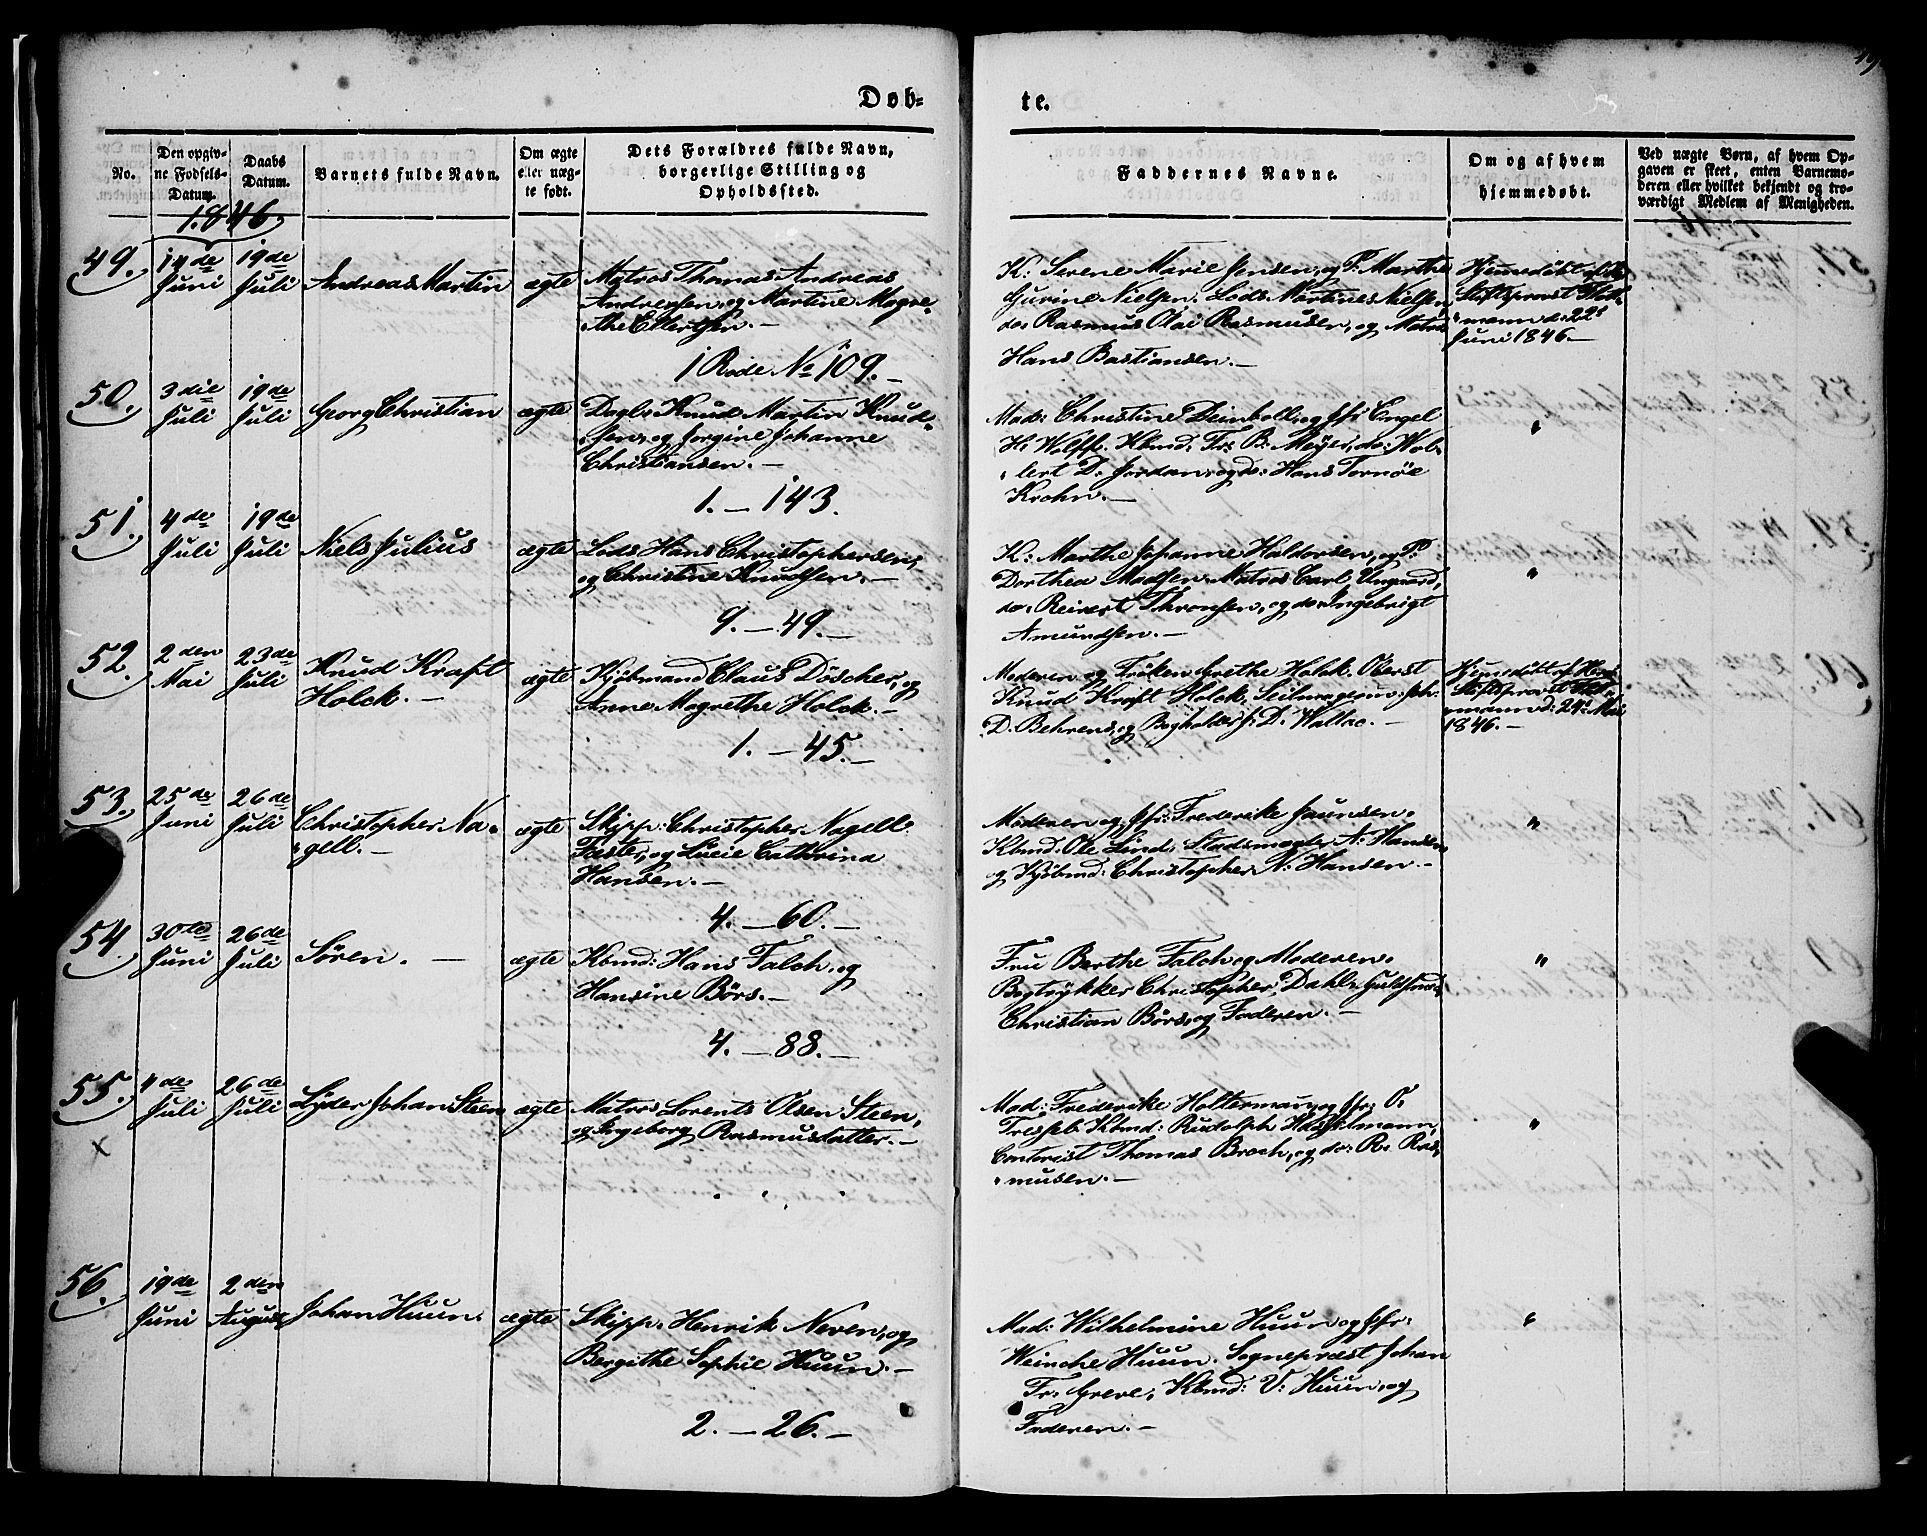 49
Døb-
te.
No.
Den opgiv-
ne Fødsels-
Datum.
Daabs
Datum.
Barnets fulde Navn.
Om ægte
eller uæg-
te født.
Dets Forældres fulde Navn,
borgerlige Stilling og
Opholdssted.
Faddernes Navne.
Om og af hvem
hjemmedøbt.
Ved uægte Børn, af hvem Op-
gaven er skeet, enten Barnemo-
deren eller hvilket bekjendt og tro-
værdigt Medlem af Menigheden.
1846
49.
14de
Juni
19de
Juli
Andreas Martin
ægte
Matros Thomas Andreas
Andersen, og Martine Magre-
the Ellertsen.-
1 Rode No 109.-
K: Serene Marie Jensen, og P: Marthe
Gurine Nielsen. Lods Martines Nielsen,
do Rasmus Olai Rasmusen, og Matros
Hans Bastiansen.-
Hjemmedøbt af Hr
Stiftsprovst
mann d: 22d
Juni 1846.-
50.
3die
Juli
19de
Juli
Georg Christian
ægte
Dagl: Knud Martin Knud-
sen, og Jorgine Johanne
Christiansen.-
1.-143.
Mad: Christine Deinboll, og Jfr: Engel
H: Wolff. Kbmd: Fr: B: Meyer, do: Wol-
lert D. Jordan, og do: Hans Tornöe
Krohn.-
"
51.
4de
Juli
19de
Juli
Niels Julius
ægte
Lods Hans Christophersen,
og Christine Knudsen.-
9.-49.-
K: Marthe Johanne Haldorsen, og P:
Dorthea Madsen. Matros Carl Ungaard,
do: Reinert Thronsen, og do: Ingebrigt
Amundsen.-
"
52.
2den
Mai
23de
Juli
Knud Kraft
Holck.-
ægte
Kjöbmand Claus Döscher, og
Anne Magrethe Holck.-
1.-45.-
Moderen og Fröken Grethe Holck. Oberst
Knud Kraft Holck, Seilmagerm: Joh:
D. Behrens, og Bogholder J: D: Wallac.-
Hjemmedöbt af Herr
Stiftsprovst
mann d: 24d Mai
1846.-
53.
25de
Juni
26de
Juli
Christopher Na-
gell.-
ægte
Skipp: Christopher Nagell
Faste, og Lucie Cathrina
Hansen.-
4.-60.-
Moderen og Jfr: Frederike Jaunsen.
Kbmd: Ole Lind, Stadsmægler A: Hansen,
og Kjöbmd: Christopher N: Hansen.-
"
54
30te
Juni
26de
Juli
Sören.-
ægte
Kbmd: Hans Falch, og
Hansine Börs.-
4.-88.-
Fru Berthe Falch og Moderen.
Bogtrykker Christopher Dahl, Guldsmed
Christian Börs, og Faderen.-
"
55.
4de
Juli
26de
Juli
Lyder Johan Steen
ægte
Matros Lorents Olsen Steen,
og Ingeborg Rasmusdatter.-
x
Mad: Frederike Holtermann, og Jfr: O:
Tressel. Kbmd: Rudolph Hasselmann,
Contorist Thomas Broch, og do: R: Ras-
musen.-
"
56.
19de
Juni
2den
August
Johan Huun.
ægte
Skipp: Henrik Neven, og
Bergithe Sophie Huun.-
2.-26.-
Mad: Wilhelmine Huun og Jfr:
Weinche Huun. Sognepræst Johan
Fr: Greve, Kbmd: U: Huun, og
Faderen.-
"